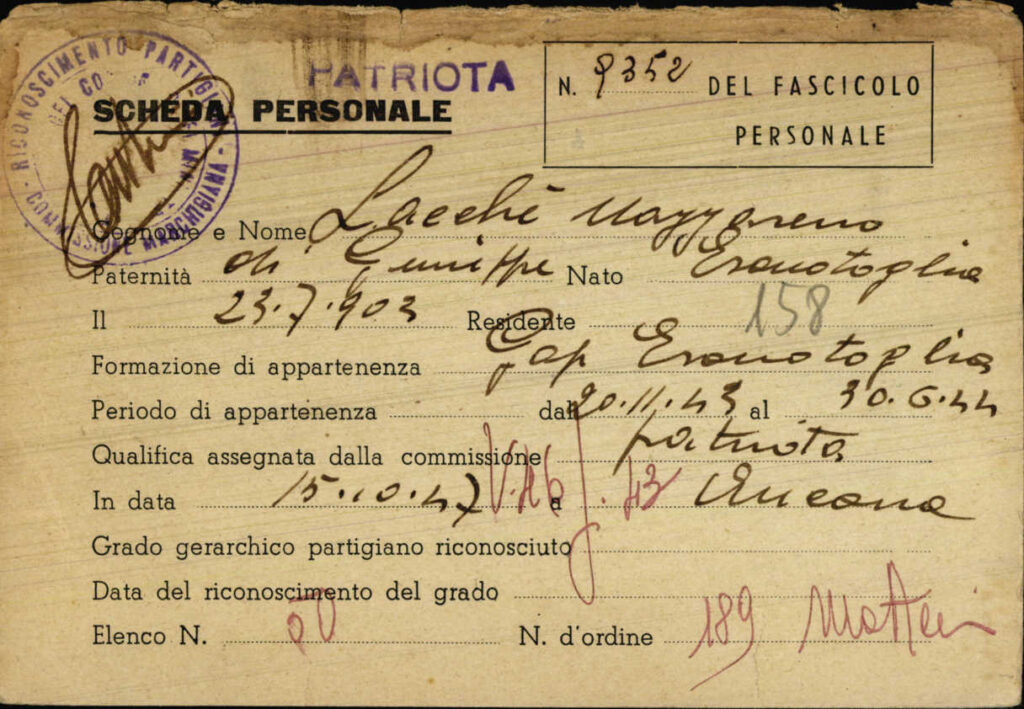 RICONOSCIMENTO PARTIGIANI
COMMISSIONE MARCHIGIANA
PATRIOTA
SCHEDA PERSONALE
N. 9352 DEL FASCICOLO
PERSONALE
Cognome e Nome Lacchè Nazzareno
Paternità di Giuseppe Nato Esanatoglia
Il 23.7.903 Residente
158
Formazione di appartenenza Gap Esanatoglia
Periodo di appartenenza dal 20.11.43 al 30.6.44
Qualifica assegnata dalla commissione patriota
In data 15.10.47 a Ancona
Grado gerarchico partigiano riconosciuto
Data del riconoscimento del grado
Elenco N. 50 N. d'ordine 189 Mattei